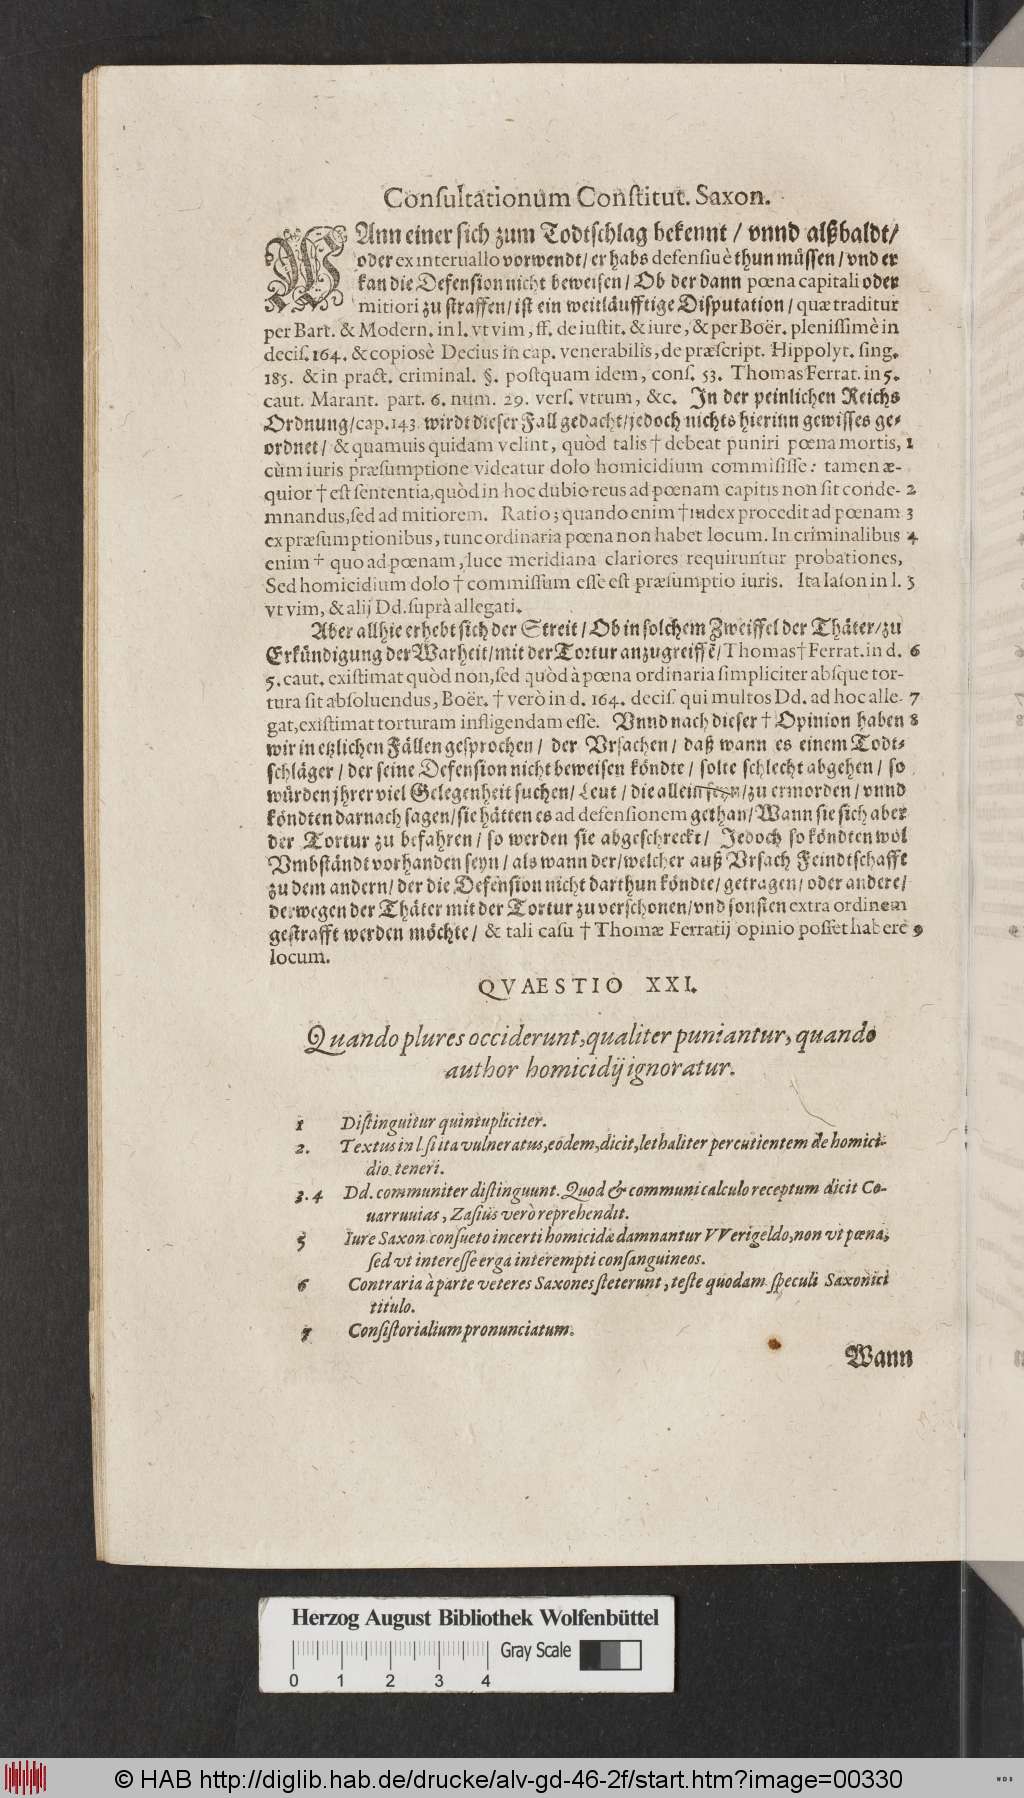 Conſultationum Conſtitut. Saxon.
WAnn einer ſich zum Todtſchlag bekennt / vnnd alßbaldt /
oder ex interuallo vorwendt / er habs defenſiuè thun müſſen / vnd er
kan die Defenſion nicht beweiſen / Ob der dann pœna capitali oder
mitiori zu ſtraffen / iſt ein weitläufftige Diſputation / quæ traditur
per Bart. & Modern. in l. vt vim, ff. de iuſtit. & iure, & per Boër. pleniſſimè in
deciſ. 164. & copiosè Decius in cap. venerabilis, de præſcript. Hippolyt. ſing.
185. & in pract. criminal. §. poſtquam idem, conſ. 53. Thomas Ferrat. in 5.
caut. Marant. part. 6. num. 29. verſ. vtrum, &c. In der peinlichen Reichs
Ordnung / cap. 143. wirdt dieſer Fall gedacht / jedoch nichts hierinn gewiſſes ge⸗
ordnet / & quamuis quidam velint, quòd talis † debeat puniri pœna mortis, 1
cùm iuris præſumptione videatur dolo homicidium commiſiſſe: tamen æ-
quior † eſt ſententia, quòd in hoc dubio reus ad pœnam capitis non ſit conde- 2
mnandus, ſed ad mitiorem. Ratio; quando enim † iudex procedit ad pœnam 3
ex præſumptionibus, tunc ordinaria pœna non habet locum. In criminalibus 4
enim † quo ad pœnam, luce meridiana clariores requiruntur probationes,
Sed homicidium dolo † commiſſum eſſe eſt præſumptio iuris. Ita Iaſon in l. 5
vt vim, & alij Dd. ſuprà allegati.
Aber allhie erhebt ſich der Streit / Ob in ſolchem Zweiffel der Thäter / zu
Erkündigung der Warheit / mit der Tortur anzugreiffẽ / Thomas † Ferrat. in d. 6
5. caut. exiſtimat quòd non, ſed quòd à pœna ordinaria ſimpliciter absque tor-
tura ſit abſoluendus, Boër. † verò in d. 164. deciſ. qui multos Dd. ad hoc alle- 7
gat, exiſtimat torturam infligendam eſſe. Vnnd nach dieſer † Opinion haben 8
wir in etzlichen Fällen geſprochen / der Vrſachen / daß wann es einem Todt⸗
ſchläger / der ſeine Defenſion nicht beweiſen köndte / ſolte ſchlecht abgehen / ſo
würden jhrer viel Gelegenheit ſuchen / Leut / die allein ſeyn / zu ermorden / vnnd
köndten darnach ſagen / ſie hätten es ad defenſionem gethan / Wann ſie ſich aber
der Tortur zu befahren / ſo werden ſie abgeſchreckt / Jedoch ſo köndten wol
Vmbſtändt vorhanden ſeyn / als wann der / welcher auß Vrſach Feindtſchafft
zu dem andern / der die Defenſion nicht darthun köndte / getragen / oder andere /
derwegen der Thäter mit der Tortur zu verſchonen / vnd ſonſten extra ordinem
geſtrafft werden möchte / & tali caſu † Thomæ Ferratij opinio poſſet habere 9
locum.
QVAESTIO XXI.
Quando plures occiderunt, qualiter puniantur, quando
author homicidij ignoratur.
1 Diſtinguitur quintupliciter.
2. Textus in l. ſi ita vulneratus, eodem, dicit, lethaliter percutientem de homici-
dio teneri.
3. 4 Dd. communiter diſtinguunt. Quod & communi calculo receptum dicit Co-
uarruuias, Zaſius verò reprehendit.
5 Iure Saxon. conſueto incerti homicidæ damnantur VVerigeldo, non vt pœna,
ſed vt intereſſe erga interempti conſanguineos.
6 Contraria à parte veteres Saxones ſteterunt, teſte quodam ſpeculi Saxonici
titulo.
7 Conſiſtorialium pronunciatum.
Wann
Herzog August Bibliothek Wolfenbüttel
Gray Scale
0 1 2 3 4
© HAB http://diglib.hab.de/drucke/alv-gd-46-2f/start.htm?image=00330